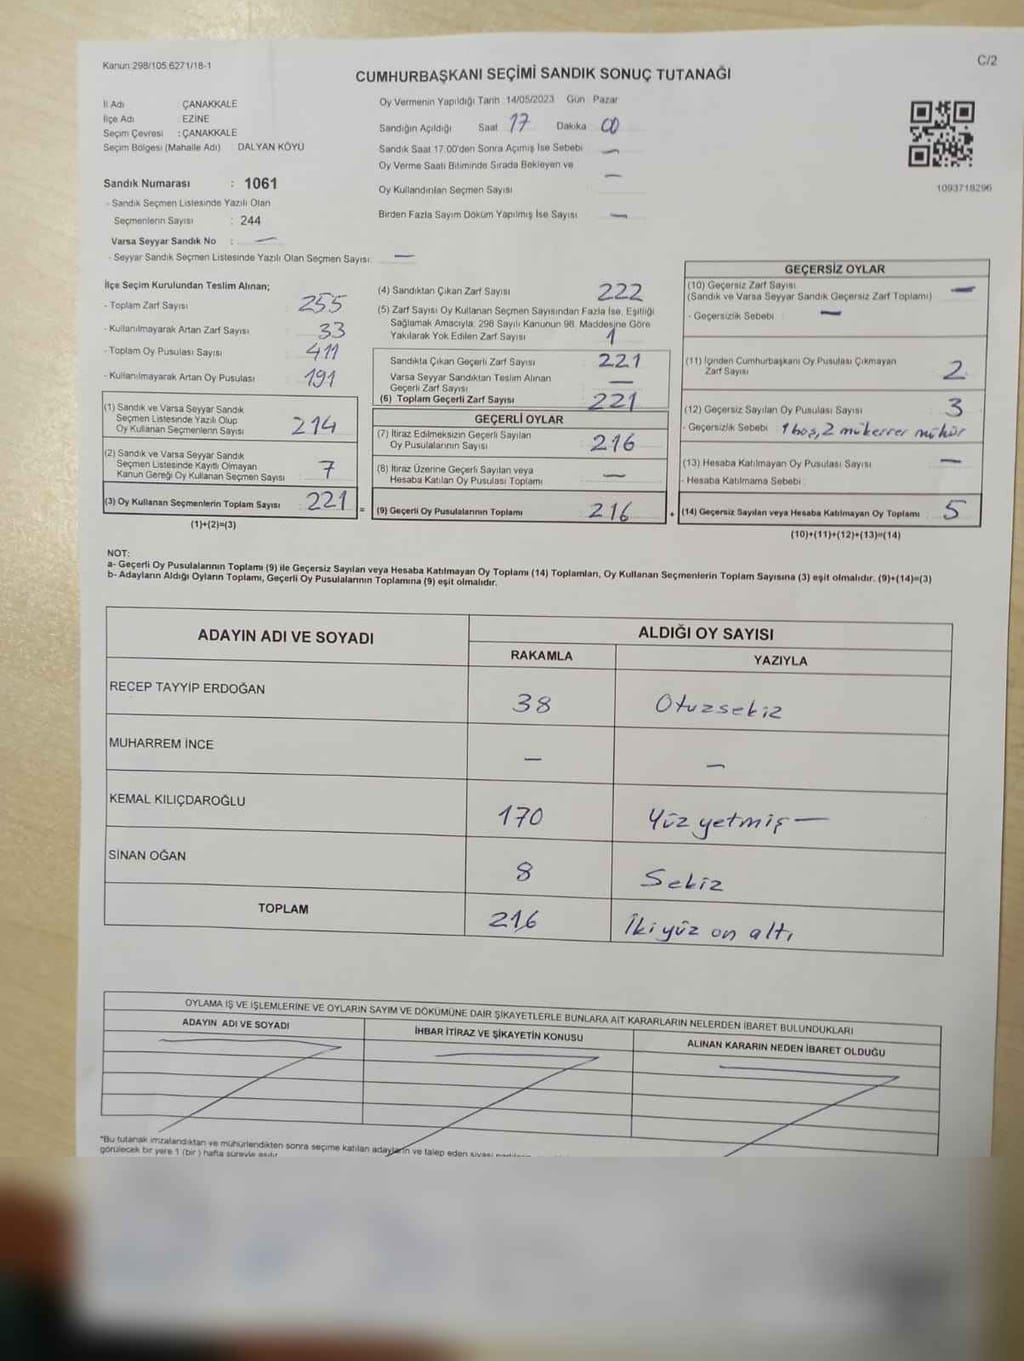 Kanun:298/105.6271/18-1
C/2
CUMHURBAŞKANI SEÇİMİ SANDIK SONUÇ TUTANAĞI
İl Adı ÇANAKKALE
İlçe Adı EZİNE
Seçim Çevresi : ÇANAKKALE
Seçim Bölgesi (Mahalle Adı) DALYAN KÖYÜ
Sandık Numarası : 1061
- Sandık Seçmen Listesinde Yazılı Olan
Seçmenlerin Sayısı : 244
Varsa Seyyar Sandık No : —
- Seyyar Sandık Seçmen Listesinde Yazılı Olan Seçmen Sayısı: —
Oy Vermenin Yapıldığı Tarih 14/05/2023 Gün Pazar
Sandığın Açıldığı Saat 17 Dakika 00
Sandık Saat 17.00'den Sonra Açımış İse Sebebi —
Oy Verme Saati Bitiminde Sırada Bekleyen ve —
Oy Kullandırılan Seçmen Sayısı
Birden Fazla Sayım Döküm Yapılmış İse Sayısı —
1093718296
İlçe Seçim Kurulundan Teslim Alınan;
- Toplam Zarf Sayısı 255
- Kullanılmayarak Artan Zarf Sayısı 33
- Toplam Oy Pusulası Sayısı 411
- Kullanılmayarak Artan Oy Pusulası 191
(1) Sandık ve Varsa Seyyar Sandık
Seçmen Listesinde Yazılı Olup
Oy Kullanan Seçmenlerin Sayısı 214
(2) Sandık ve Varsa Seyyar Sandık
Seçmen Listesinde Kayıtlı Olmayan
Kanun Gereği Oy Kullanan Seçmen Sayısı 7
(3) Oy Kullanan Seçmenlerin Toplam Sayısı 221 =
(1)+(2)=(3)
(4) Sandıktan Çıkan Zarf Sayısı 222
(5) Zarf Sayısı Oy Kullanan Seçmen Sayısından Fazla İse, Eşitliği
Sağlamak Amacıyla, 298 Sayılı Kanunun 98. Maddesine Göre
Yakılarak Yok Edilen Zarf Sayısı 1
Sandıkta Çıkan Geçerli Zarf Sayısı 221
Varsa Seyyar Sandıktan Teslim Alınan
Geçerli Zarf Sayısı —
(6) Toplam Geçerli Zarf Sayısı 221
GEÇERLİ OYLAR
(7) İtiraz Edilmeksizin Geçerli Sayılan
Oy Pusulalarının Sayısı 216
(8) İtiraz Üzerine Geçerli Sayılan veya
Hesaba Katılan Oy Pusulası Toplamı —
(9) Geçerli Oy Pusulalarının Toplamı 216 +
GEÇERSİZ OYLAR
(10) Geçersiz Zarf Sayısı —
(Sandık ve Varsa Seyyar Sandık Geçersiz Zarf Toplamı)
- Geçersizlik Sebebi —
(11) İçinden Cumhurbaşkanı Oy Pusulası Çıkmayan
Zarf Sayısı 2
(12) Geçersiz Sayılan Oy Pusulası Sayısı 3
- Geçersizlik Sebebi 1 boş, 2 mükerrer mühür
(13) Hesaba Katılmayan Oy Pusulası Sayısı —
- Hesaba Katılmama Sebebi
(14) Geçersiz Sayılan veya Hesaba Katılmayan Oy Toplamı 5
(10)+(11)+(12)+(13)=(14)
NOT:
a- Geçerli Oy Pusulalarının Toplamı (9) ile Geçersiz Sayılan veya Hesaba Katılmayan Oy Toplamı (14) Toplamları, Oy Kullanan Seçmenlerin Toplam Sayısına (3) eşit olmalıdır. (9)+(14)=(3)
b- Adayların Aldığı Oyların Toplamı, Geçerli Oy Pusulalarının Toplamına (9) eşit olmalıdır.
ADAYIN ADI VE SOYADI ALDIĞI OY SAYISI
RAKAMLA YAZIYLA
RECEP TAYYİP ERDOĞAN 38 Otuzsekiz
MUHARREM İNCE — —
KEMAL KILIÇDAROĞLU 170 Yüz yetmiş —
SİNAN OĞAN 8 Sekiz
TOPLAM 216 İki yüz on altı
OYLAMA İŞ VE İŞLEMLERİNE VE OYLARIN SAYIM VE DÖKÜMÜNE DAİR ŞİKAYETLERLE BUNLARA AİT KARARLARIN NELERDEN İBARET BULUNDUKLARI
ADAYIN ADI VE SOYADI İHBAR İTİRAZ VE ŞİKAYETİN KONUSU ALINAN KARARIN NEDEN İBARET OLDUĞU
*Bu tutanak imzalandıktan ve mühürlendikten sonra seçime katılan adayların ve talep eden siyasi
görülecek bir yere 1 (bir) hafta süreyle asılır